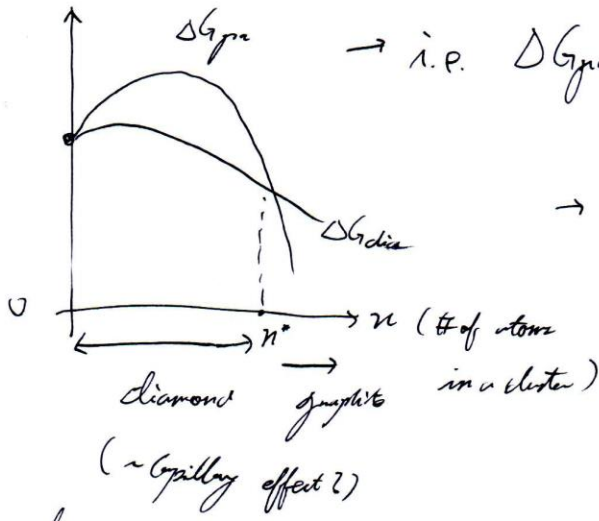 ΔGgra → i.e. ΔGgra
→
ΔGdia
0
n* n (# of atoms
in a cluster)
diamond → graphite
(~ Capillary effect?)